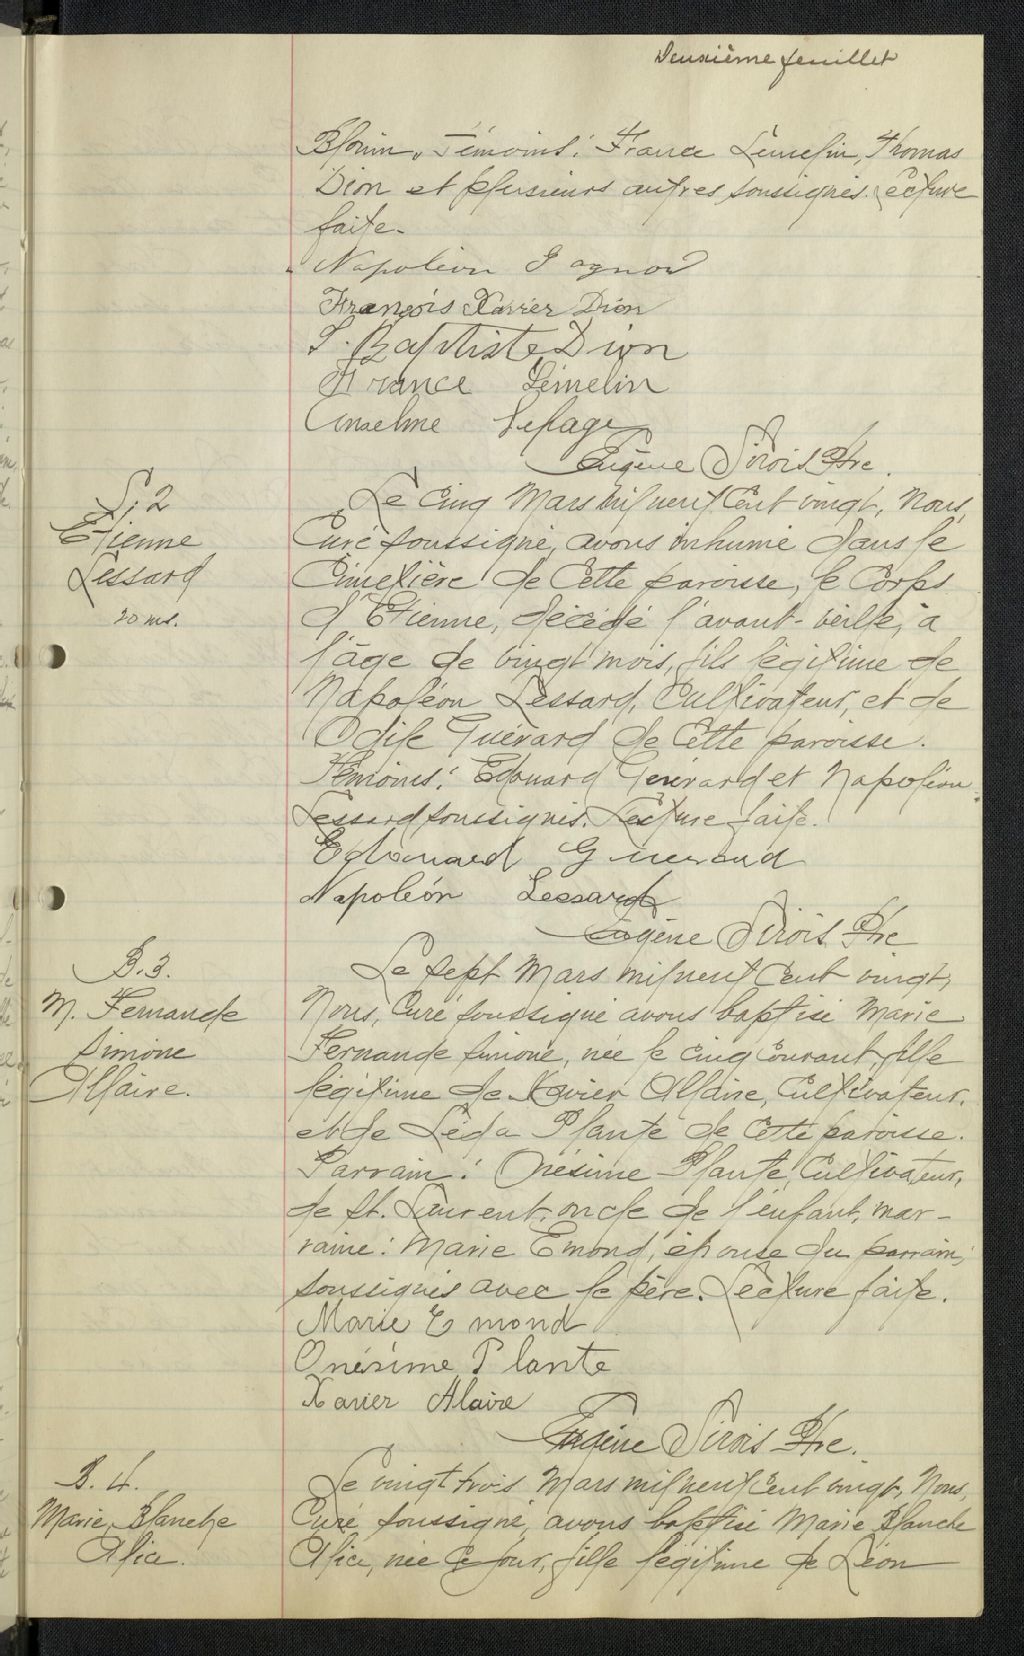 Deuxième feuillet
Blouin. Témoins: France Lémelin, Thomas
Dion et plusieurs autres soussignés. Lecture
faite.
Napoléon Gagnon
François Xavier Dion
J. Baptiste Dion
France Lémelin
Anselme Lepage
Eugène Sirois Ptre.
S. 2
Etienne
Lessard
20 ms.
Le cinq Mars mil neuf cent vingt, Nous,
Curé soussigné, avons inhumé dans le
Cimetière de cette paroisse, le corps
d'Etienne, décédé l'avant-veille, à
l'âge de vingt mois, fils légitime de
Napoléon Lessard, Cultivateur, et de
Odile Guérard de cette paroisse.
Témoins: Edouard Guérard et Napoléon
Lessard soussignés. Lecture faite.
Edouard Guerard
Napoléon Lessard
Eugène Sirois Ptre
B. 3.
M. Fernande
Simone
Allaire.
Le sept Mars mil neuf cent vingt,
Nous, Curé soussigné avons baptisé Marie
Fernande Simone, née le cinq courant, fille
légitime de Xavier Allaire, Cultivateur,
et de Léda Plante de cette paroisse.
Parrain: Onésime Plante, Cultivateur,
de St. Laurent, oncle de l'enfant, mar-
raine: Marie Emond, épouse du parrain,
soussignés avec le père. Lecture faite.
Marie Emond
Onésime Plante
Xavier Alaire
Eugène Sirois Ptre.
B. 4.
Marie Blanche
Alice.
Le vingt trois Mars mil neuf cent vingt, Nous,
Curé soussigné, avons baptisé Marie Blanche
Alice, née ce jour, fille légitime de Léon